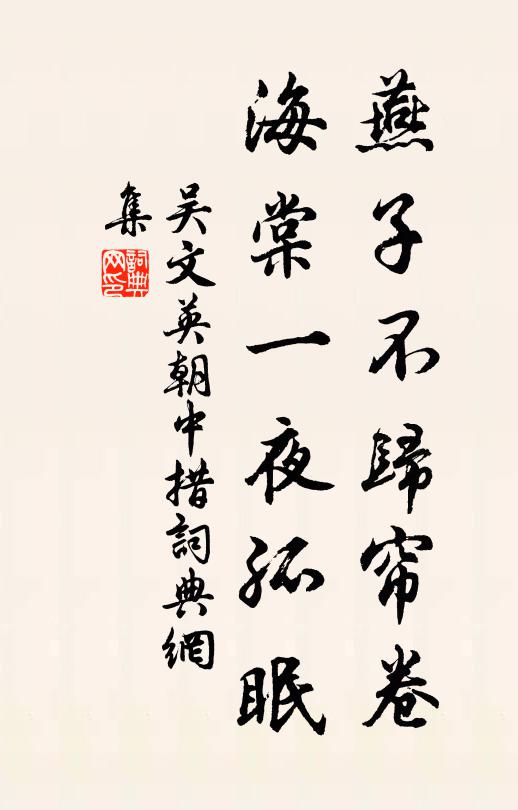 燕子不歸帘卷
海棠一夜孤眠
吴文英朝中措詞典網
集
詞典
网印